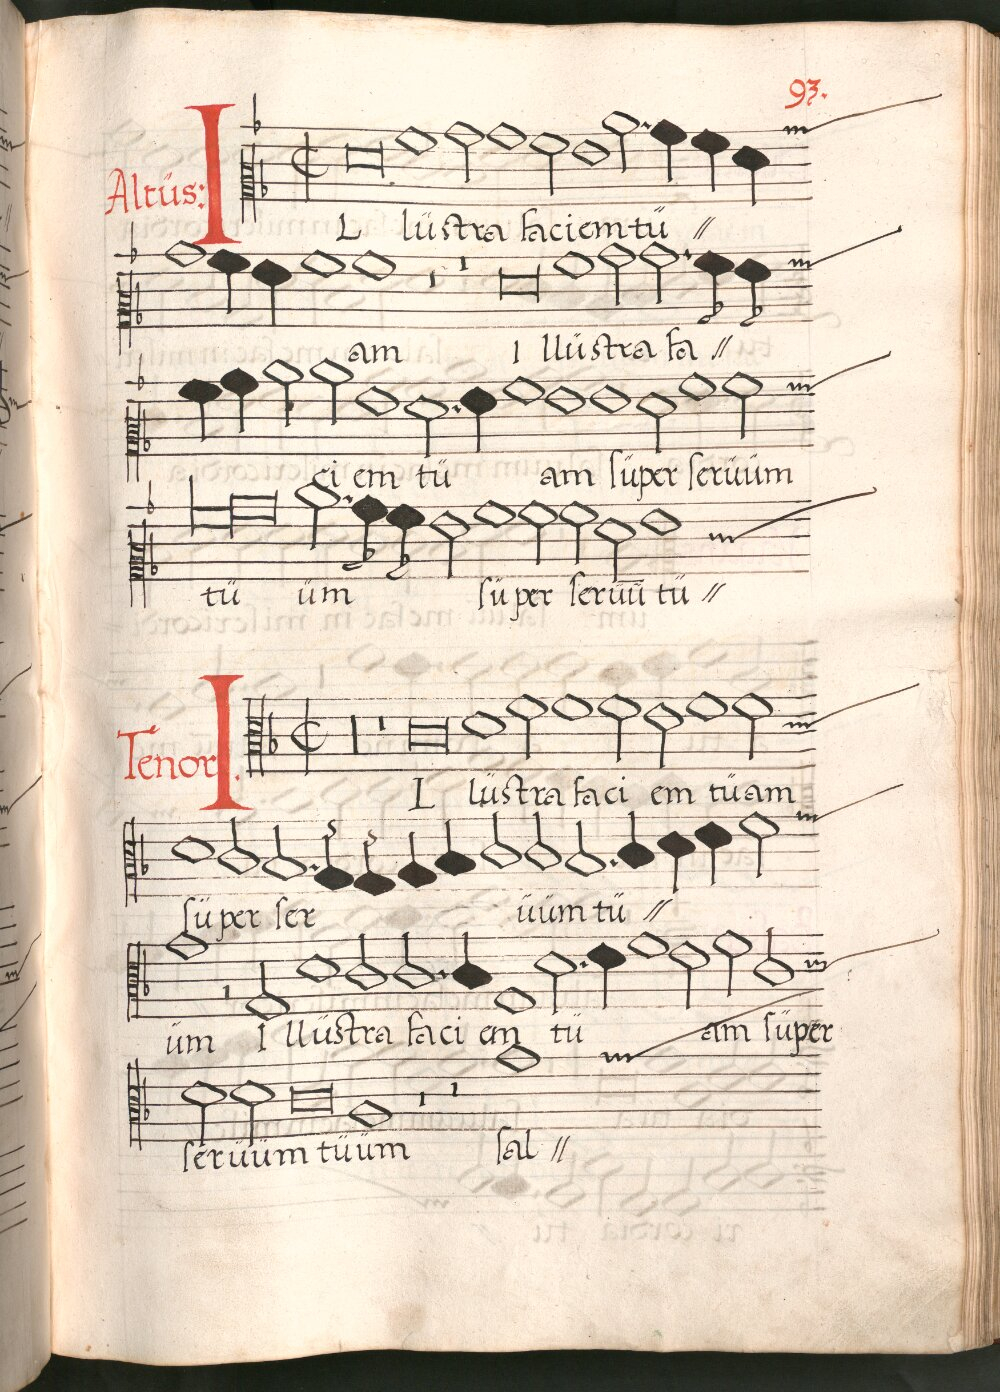 93.
Altüs:
I L lüstra faciem tü //
am I llüstra fa //
ci em tü am süper serüüm
tü üm süper serüū tü //
Tenor.
I L lüstra faci em tüam
süper ser üüm tü //
üm I llüstra faci em tü am süper
serüüm tüüm sal //